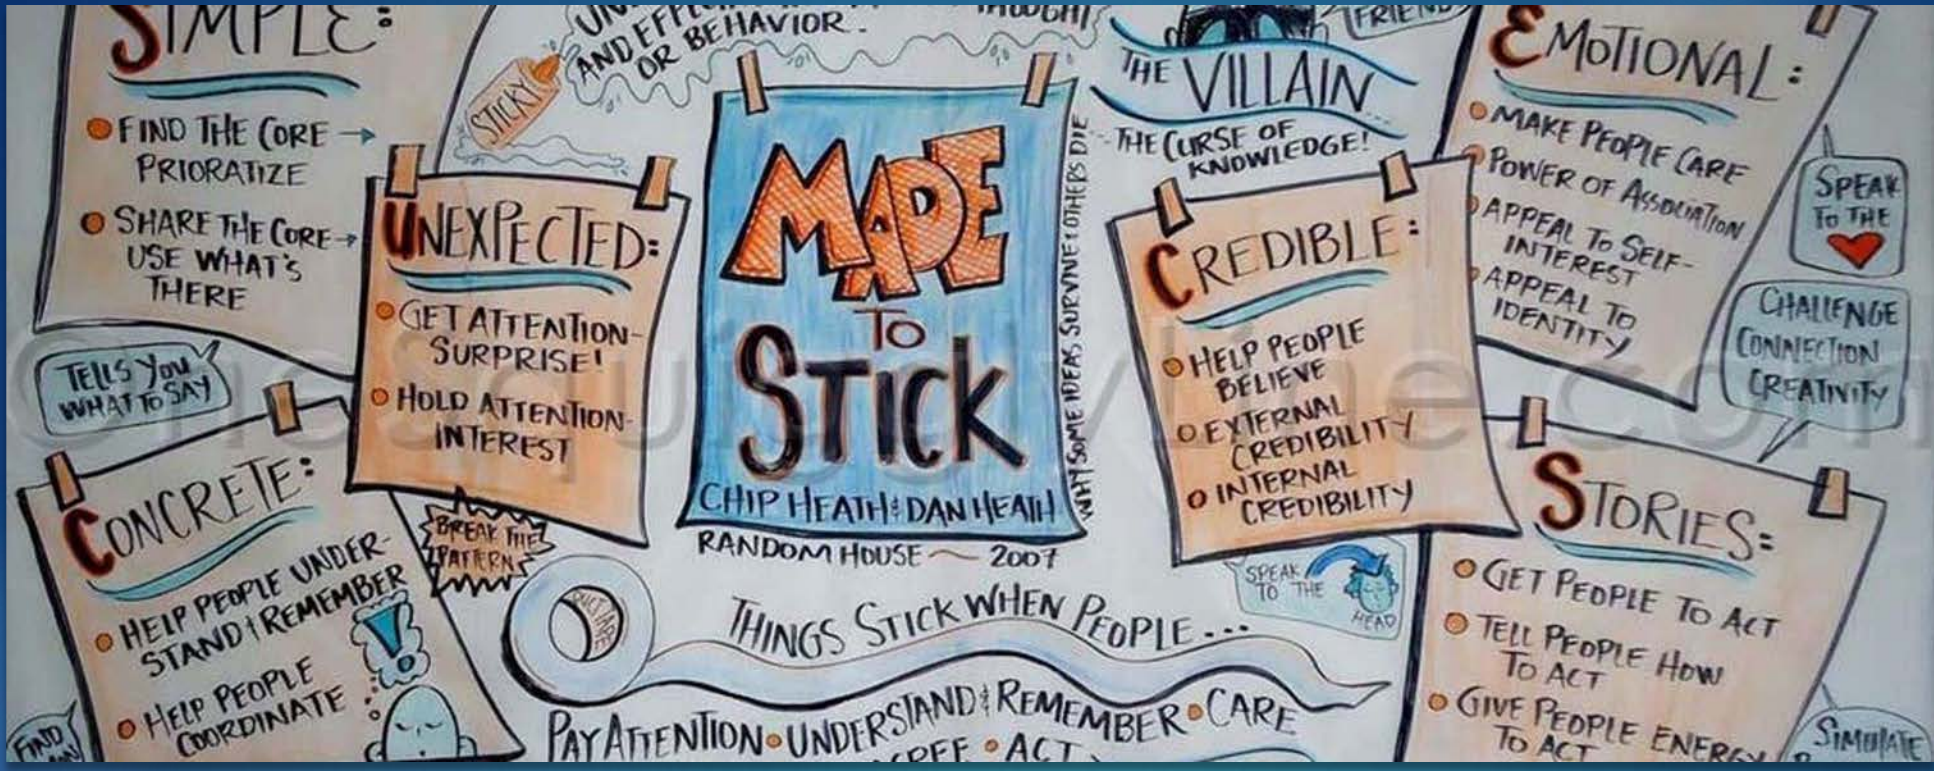 SIMPLE:
FIND THE CORE →
PRIORATIZE
SHARE THE CORE →
USE WHAT'S
THERE
TELLS YOU
WHAT TO SAY
AND EFFECT
THOUGHT
OR BEHAVIOR.
STICKY
UNEXPECTED:
GET ATTENTION-
SURPRISE!
HOLD ATTENTION-
INTEREST
BREAK THE
PATTERN
CONCRETE:
HELP PEOPLE UNDER-
STAND & REMEMBER
HELP PEOPLE
COORDINATE
FIND
MADE
TO
STICK
CHIP HEATH & DAN HEATH
WHY SOME IDEAS SURVIVE & OTHERS DIE
RANDOM HOUSE ~ 2007
DUCT TAPE
THINGS STICK WHEN PEOPLE...
PAY ATTENTION • UNDERSTAND & REMEMBER • CARE
• ACT
FRIEND
THE VILLAIN
THE CURSE OF
KNOWLEDGE!
CREDIBLE:
HELP PEOPLE
BELIEVE
EXTERNAL
CREDIBILITY
INTERNAL
CREDIBILITY
SPEAK
TO THE
HEAD
EMOTIONAL:
MAKE PEOPLE CARE
POWER OF ASSOCIATION
APPEAL TO SELF-
INTEREST
APPEAL TO
IDENTITY
SPEAK
TO THE
CHALLENGE
CONNECTION
CREATIVITY
STORIES:
GET PEOPLE TO ACT
TELL PEOPLE HOW
TO ACT
GIVE PEOPLE ENERGY
TO ACT
SIMULATE